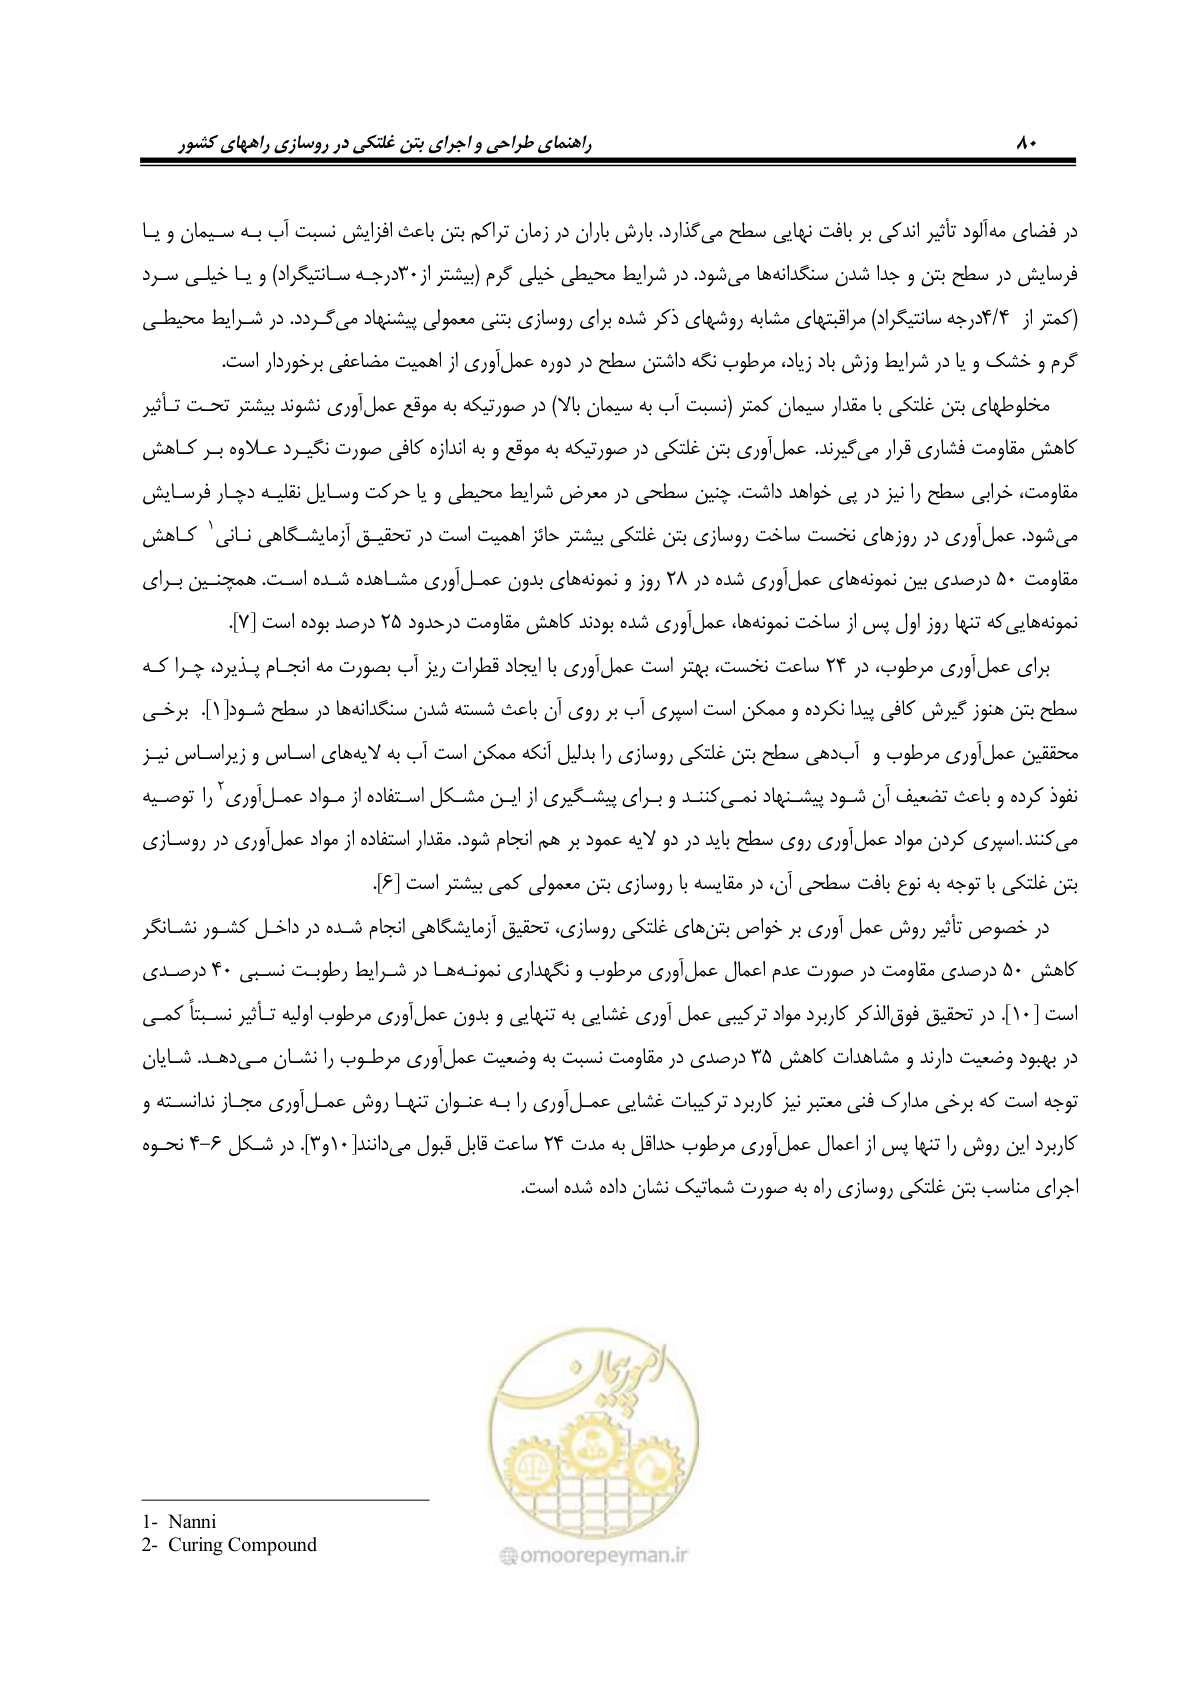 ۸۰ راهنمای طراحی و اجرای بتن غلتکی در روسازی راههای کشور
در فضای مه‌آلود تأثیر اندکی بر بافت نهایی سطح می‌گذارد. بارش باران در زمان تراکم بتن باعث افزایش نسبت آب به سیمان و یا
فرسایش در سطح بتن و جدا شدن سنگدانه‌ها می‌شود. در شرایط محیطی خیلی گرم (بیشتر از۳۰درجه سانتیگراد) و یا خیلی سرد
(کمتر از ۴/۴درجه سانتیگراد) مراقبتهای مشابه روشهای ذکر شده برای روسازی بتنی معمولی پیشنهاد می‌گردد. در شرایط محیطی
گرم و خشک و یا در شرایط وزش باد زیاد، مرطوب نگه داشتن سطح در دوره عمل‌آوری از اهمیت مضاعفی برخوردار است.
مخلوطهای بتن غلتکی با مقدار سیمان کمتر (نسبت آب به سیمان بالا) در صورتیکه به موقع عمل‌آوری نشوند بیشتر تحت تأثیر
کاهش مقاومت فشاری قرار می‌گیرند. عمل‌آوری بتن غلتکی در صورتیکه به موقع و به اندازه کافی صورت نگیرد علاوه بر کاهش
مقاومت، خرابی سطح را نیز در پی خواهد داشت. چنین سطحی در معرض شرایط محیطی و یا حرکت وسایل نقلیه دچار فرسایش
می‌شود. عمل‌آوری در روزهای نخست ساخت روسازی بتن غلتکی بیشتر حائز اهمیت است در تحقیق آزمایشگاهی نانی۱ کاهش
مقاومت ۵۰ درصدی بین نمونه‌های عمل‌آوری شده در ۲۸ روز و نمونه‌های بدون عمل‌آوری مشاهده شده است. همچنین برای
نمونه‌هایی‌که تنها روز اول پس از ساخت نمونه‌ها، عمل‌آوری شده بودند کاهش مقاومت درحدود ۲۵ درصد بوده است [۷].
برای عمل‌آوری مرطوب، در ۲۴ ساعت نخست، بهتر است عمل‌آوری با ایجاد قطرات ریز آب بصورت مه انجام پذیرد، چرا که
سطح بتن هنوز گیرش کافی پیدا نکرده و ممکن است اسپری آب بر روی آن باعث شسته شدن سنگدانه‌ها در سطح شود[۱]. برخی
محققین عمل‌آوری مرطوب و آب‌دهی سطح بتن غلتکی روسازی را بدلیل آنکه ممکن است آب به لایه‌های اساس و زیراساس نیز
نفوذ کرده و باعث تضعیف آن شود پیشنهاد نمی‌کنند و برای پیشگیری از این مشکل استفاده از مواد عمل‌آوری۲ را توصیه
می‌کنند.اسپری کردن مواد عمل‌آوری روی سطح باید در دو لایه عمود بر هم انجام شود. مقدار استفاده از مواد عمل‌آوری در روسازی
بتن غلتکی با توجه به نوع بافت سطحی آن، در مقایسه با روسازی بتن معمولی کمی بیشتر است [۶].
در خصوص تأثیر روش عمل آوری بر خواص بتن‌های غلتکی روسازی، تحقیق آزمایشگاهی انجام شده در داخل کشور نشانگر
کاهش ۵۰ درصدی مقاومت در صورت عدم اعمال عمل‌آوری مرطوب و نگهداری نمونه‌ها در شرایط رطوبت نسبی ۴۰ درصدی
است [۱۰]. در تحقیق فوق‌الذکر کاربرد مواد ترکیبی عمل آوری غشایی به تنهایی و بدون عمل‌آوری مرطوب اولیه تأثیر نسبتاً کمی
در بهبود وضعیت دارند و مشاهدات کاهش ۳۵ درصدی در مقاومت نسبت به وضعیت عمل‌آوری مرطوب را نشان می‌دهد. شایان
توجه است که برخی مدارک فنی معتبر نیز کاربرد ترکیبات غشایی عمل‌آوری را به عنوان تنها روش عمل‌آوری مجاز ندانسته و
کاربرد این روش را تنها پس از اعمال عمل‌آوری مرطوب حداقل به مدت ۲۴ ساعت قابل قبول می‌دانند[۱۰و۳]. در شکل ۶-۴ نحوه
اجرای مناسب بتن غلتکی روسازی راه به صورت شماتیک نشان داده شده است.
امور پیمان
1- Nanni
2- Curing Compound
@omoorepeyman.ir